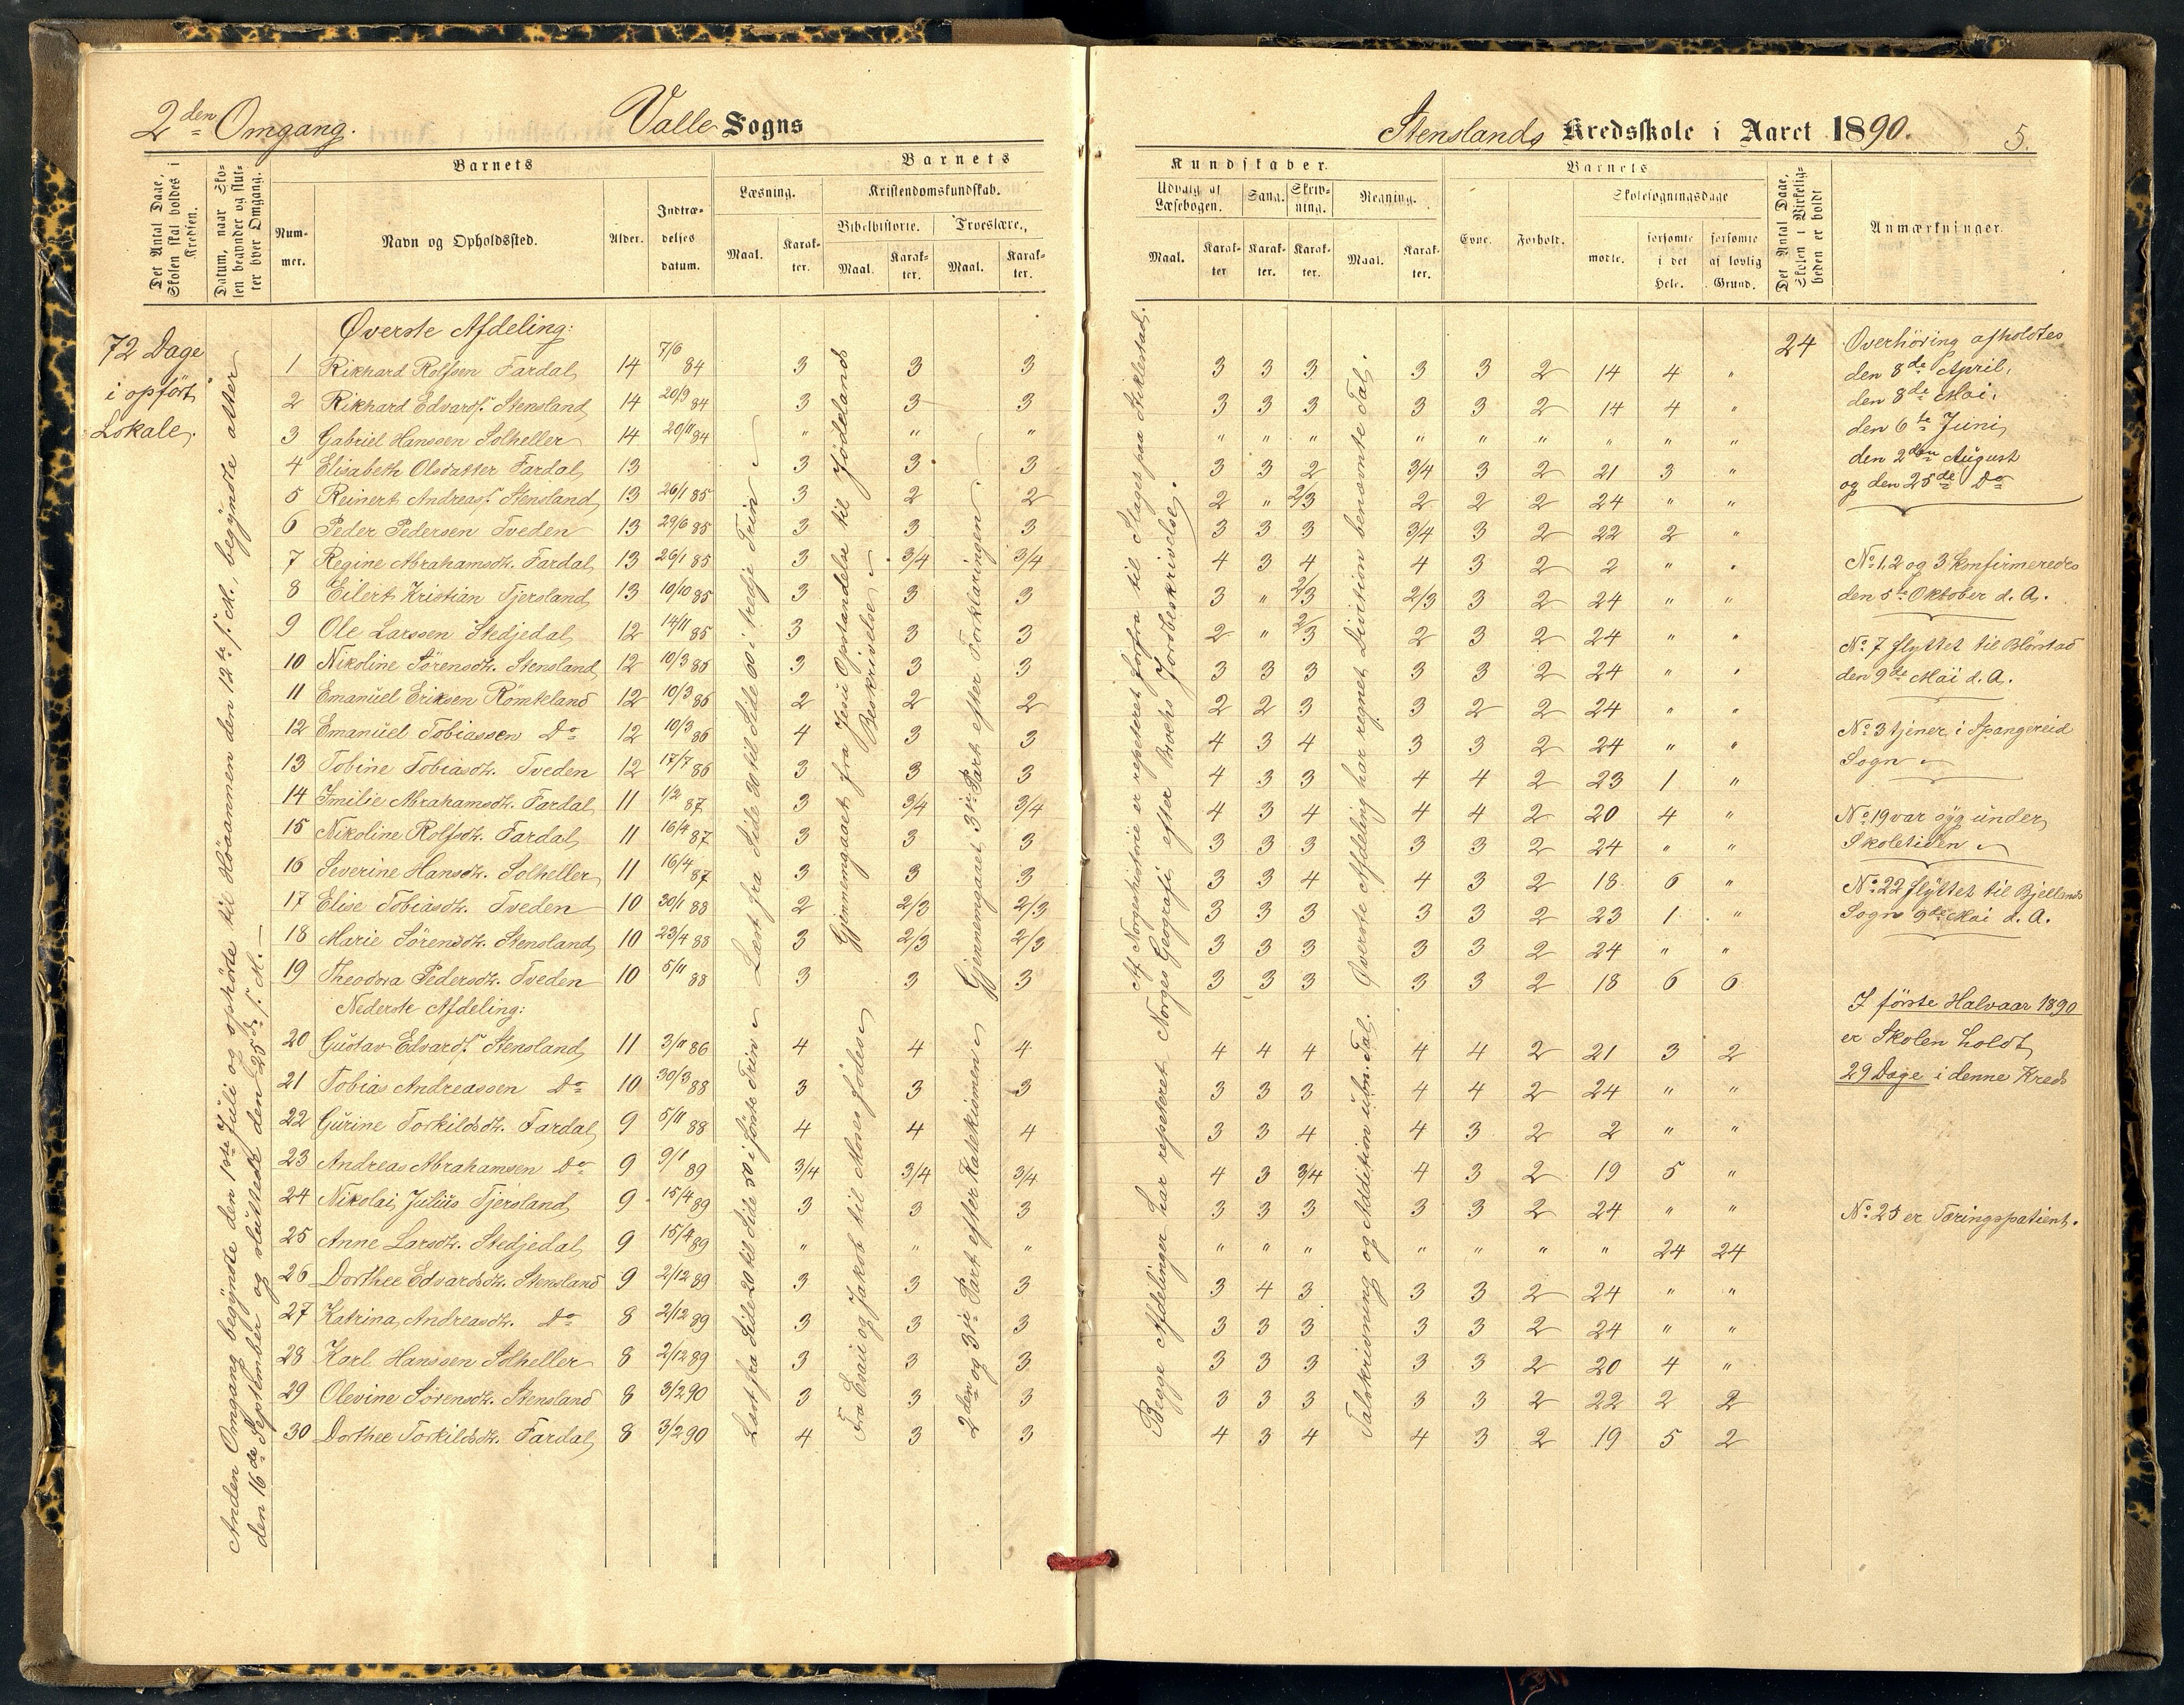 2den Omgang.
Valle Sogns
Det Antal Dage, Skolen skal holdes i Kredsen.
Datum, naar Skolen begynder og slutter hver Omgang.
Barnets
Nummer.
Navn og Opholdssted.
Alder.
Indtrædelses datum.
Barnets
Læsning.
Maal.
Karakter.
Kristendomskundskab.
Bibelhistorie.
Maal.
Karakter.
Troeslære.
Maal.
Karakter.
72 Dage
i opført
Lokale.
Anden Omgang begyndte den 1ste Juli og ophørte til Høaannen den 12te s. M., begyndte atter
den 16de September og sluttede den 25de s. M. —
Øverste Afdeling:
1 Rikhard Rolfsen Fardal 14 7/6 84 3 3 3
2 Rikhard Edvards. Stensland 14 20/3 84 3 3 3
3 Gabriel Hanssen Solheller 14 20/11 84 " " "
4 Elisabeth Olsdatter Fardal 13 3 3 3
5 Reinert Andreass. Stensland 13 26/1 85 3 2 2
6 Peder Pedersen Tveden 13 29/6 85 3 3 3
7 Regine Abrahamsdt. Fardal 13 26/1 85 3 3/4 3/4
8 Eilert Kristian Tjersland 13 10/10 85 3 3 3
9 Ole Larssen Stedjedal 12 14/11 85 3 3 3
10 Nikoline Sørensdt. Stensland 12 10/3 85 3 3 3
11 Emanüel Eriksen Römteland 12 10/3 86 2 2 2
12 Emanüel Tobiassen Do 12 10/3 86 4 3 3
13 Tobine Tobiasdt. Tveden 12 17/7 86 3 3 3
14 Imilie Abrahamsdt. Fardal 11 1/2 87 3 3/4 3/4
15 Nikoline Rolfsdt. Fardal 11 16/4 87 3 3 3
16 Severine Hansdt. Solheller 11 16/4 87 3 3 3
17 Elise Tobiasdt. Tveden 10 30/1 88 2 2/3 2/3
18 Marie Sørensdt. Stensland 10 23/4 88 3 2/3 2/3
19 Theodora Pedersdt. Tveden 10 5/11 88 3 3 3
Nederste Afdeling:
20 Güstav Edvards. Stensland 11 3/11 86 4 4 4
21 Tobias Andreassen Do 10 30/3 88 3 3 3
22 Gürine Torkildsdt. Fardal 9 5/11 88 4 4 4
23 Andreas Abrahamsen Do 9 9/1 89 3/4 3/4 3/4
24 Nikolai Julius Tjersland 9 15/4 89 3 3 3
25 Anne Larsdt. Stedjedal 9 15/4 89 " " "
26 Dorthee Edvardsdt. Stensland 9 2/12 89 3 3 3
27 Katrina Andreasdt. Do 8 2/12 89 3 3 3
28 Karl Hanssen Solheller 8 2/12 89 3 3 3
29 Olevine Sørensdt. Stensland 8 3/2 90 3 3 3
30 Dorthee Torkildsdt. Fardal 8 3/2 90 4 3 3
Læst fra Side 20 til Side 60 i tredje Trin
Læst fra Side 20 til Side 50 i første Trin
Gjennemgaaet fra Jesu Opstandelse til Jødelands
Beskrivelse
Fra Esau og Jakob til Moses fødes
Gjennemgaaet 3die Part efter Forklaringen
2den og 3die Part efter Katekismen
Stenslands Kredsskole i Aaret 1890.
5.
Kundskaber.
Udvalg af Læsebogen.
Maal.
Karakter
Sang.
Karakter.
Skrivning.
Karakter.
Regning.
Maal.
Karakter.
Barnets
Evne.
Forhold.
Skolesøgningsdage
mødte.
forsømte i det Hele.
forsømte af lovlig Grund.
Det Antal Dage, Skolen i Virkeligheden er holdt
Anmærkninger.
Af Norgeshistorie er repeteret forfra til Slaget paa Stiklestad.
Begge Afdelinger har repeteret Norges Geografi efter Brochs Jordbeskrivelse.
Øverste Afdeling har regnet Division benævnte Tal.
Talskrivning og Addition ubn. Tal.
3 3 3 3 3 2 14 4 "
3 3 3 3 3 2 14 4 "
" " " " " " " " "
3 3 2 3/4 3 2 21 3 "
2 " 2/3 2 2 2 24 " "
3 3 3 3/4 3 2 22 2 "
4 3 4 4 3 2 2 " "
3 " 2/3 2/3 3 2 24 " "
2 " 2/3 2 3 2 24 " "
3 3 3 3 3 2 24 " "
2 2 3 3 2 2 24 " "
4 3 4 3 3 2 24 " "
4 3 3 4 4 2 23 1 "
4 3 4 4 4 2 20 4 "
3 3 3 3 3 2 24 " "
3 3 4 4 3 2 18 6 "
3 3 3 3 3 2 23 1 "
3 3 3 3 3 2 24 " "
3 3 3 3 3 2 18 6 6
4 4 4 4 4 2 21 3 2
3 3 3 4 4 2 24 " "
3 3 4 4 3 2 2 " "
4 3 3/4 4 3 2 19 5 "
3 3 3 3 3 2 24 " "
" " " " " " " 24 24
3 4 3 3 3 2 24 " "
3 3 3 3 3 2 24 " "
3 3 3 3 3 2 20 4 "
3 3 3 3 3 2 22 2 2
4 3 4 4 3 2 19 5 2
24
Overhöring afholdtes
den 8de April,
den 8de Mai,
den 6te Juni,
den 2den August
og den 25de Do
No 1, 2 og 3 konfirmeredes
den 5te Oktober d. A.
No 7 flyttet til Blörstad
den 9de Mai d. A.
No 3 tjener i Spangereid
Sogn
No 19 var syg ünder
Skoletiden
No 22 flyttet til Bjellands
Sogn 9de Mai d. A.
I første Halvaar 1890
er Skolen holdt
29 Dage i denne Kreds
No 25 er Tæringspatient.